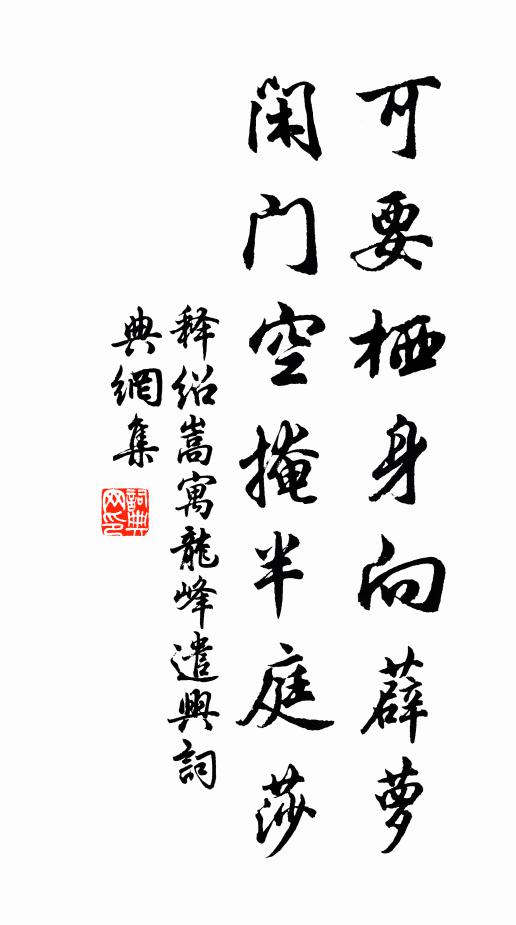 可要栖身向薜萝
闲门空掩半庭莎
释绍嵩寓龍峰遣興詞
典網集
詞典网印